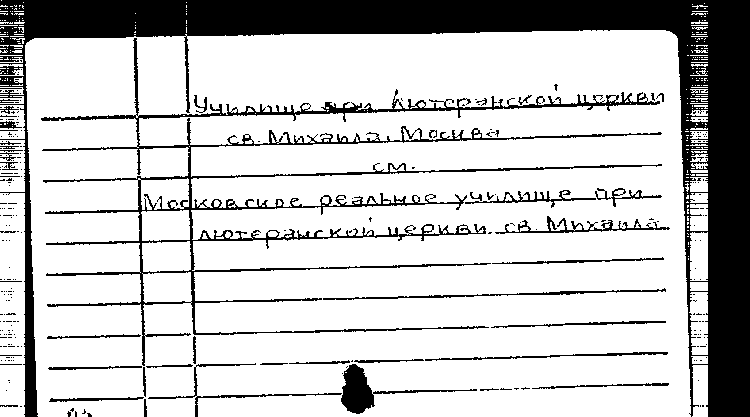 Училище при лютеранской церкви
св. Михаила, Москва
см.
Московское реальное училище при
лютеранской церкви св. Михаила